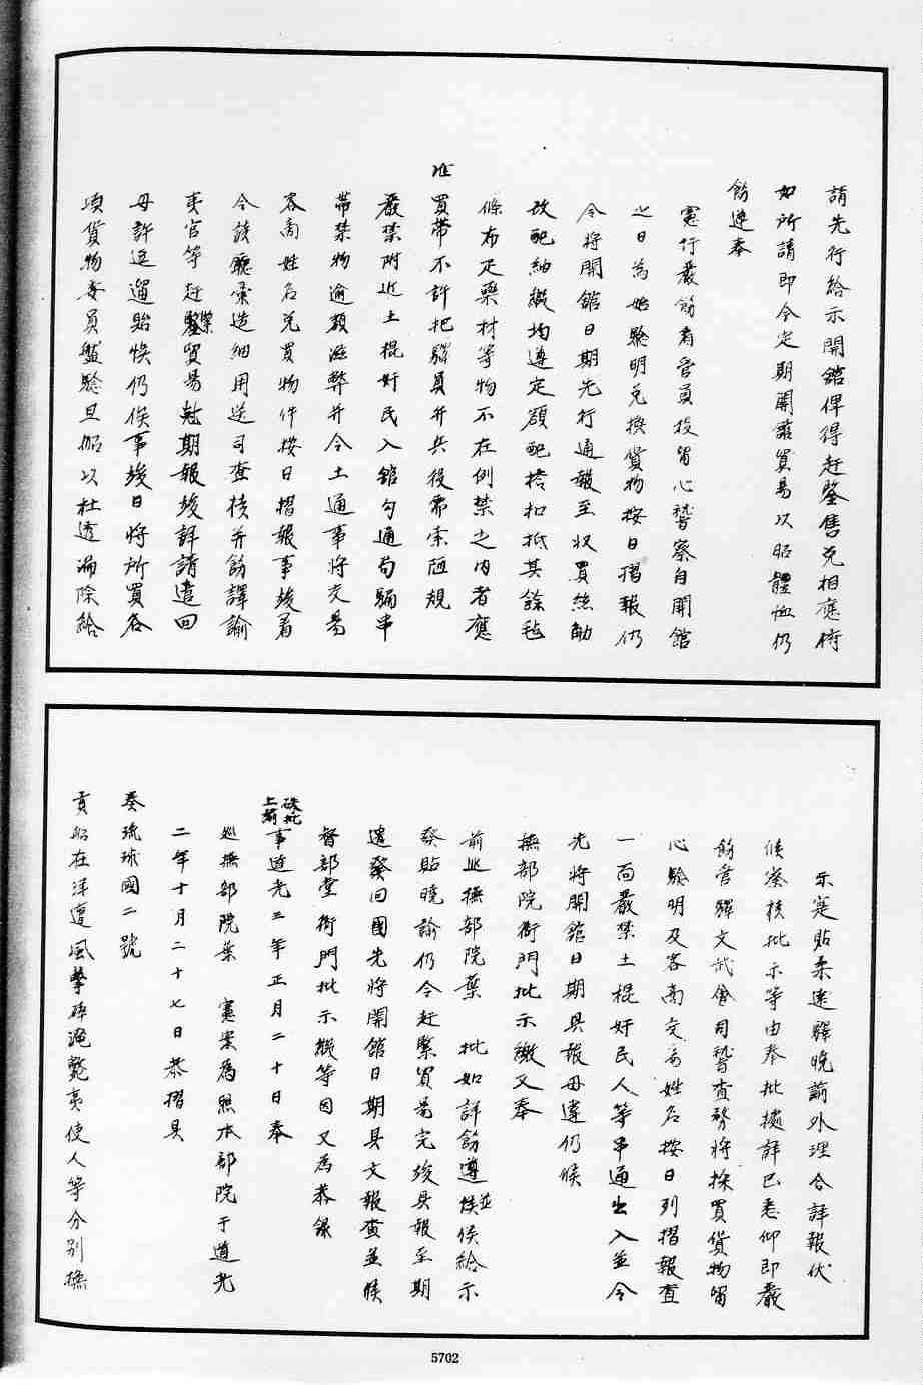 請先行給示開館俾得赶鑒售兌相應俯
如所請即令定期開館貿易以昭體恤仍
飭遵奉
憲行嚴飭着管員役留心嵇察自開館
之日為始驗明兌換貨物按日摺報仍
令將開館日期先行通報至收買絲觔
改配紬緞均遵定額配搭扣抵其餘毡
條布疋藥材等物不在例禁之內者應
准買帶不許把驛員并兵役需索陋規
嚴禁附近土棍奸民入館勾通局騙串
帶禁物逾額滋弊并令土通事將交易
客商姓名兌買物件按日摺報事竣着
令該廳彙造細用送司查核并飭譯諭
夷官等赶緊貿易尅期報竣詳請遣回
毋許逗遛貽悞仍俟事竣日將所買各
項貨物委員盤驗旦船以杜透漏除給
示寔貼柔遠驛曉諭外理合詳報伏
候察核批示等由奉批據詳已悉仰即嚴
飭管驛文武會同嵇查務將採買貨物留
心驗明及客商交易姓名按日列摺報查
一面嚴禁土棍奸民人等串通出入並令
先將開館日期具報毋違仍候
撫部院衙門批示繳又奉
前巡撫部院葉 批如詳飭遵並候給示
發貼曉諭仍令赶緊貿易完竣具報至期
遣發回國先將開館日期具文報查並候
督部堂衙門批示繳等因又為恭錄
硃批
上諭事道光三年正月二十日奉
巡撫部院葉 憲案為照本部院于道光
二年十月二十七日恭摺具
奏琉球國二號
貢船在洋遭風擊碎淹斃夷使人等分別撫
5702